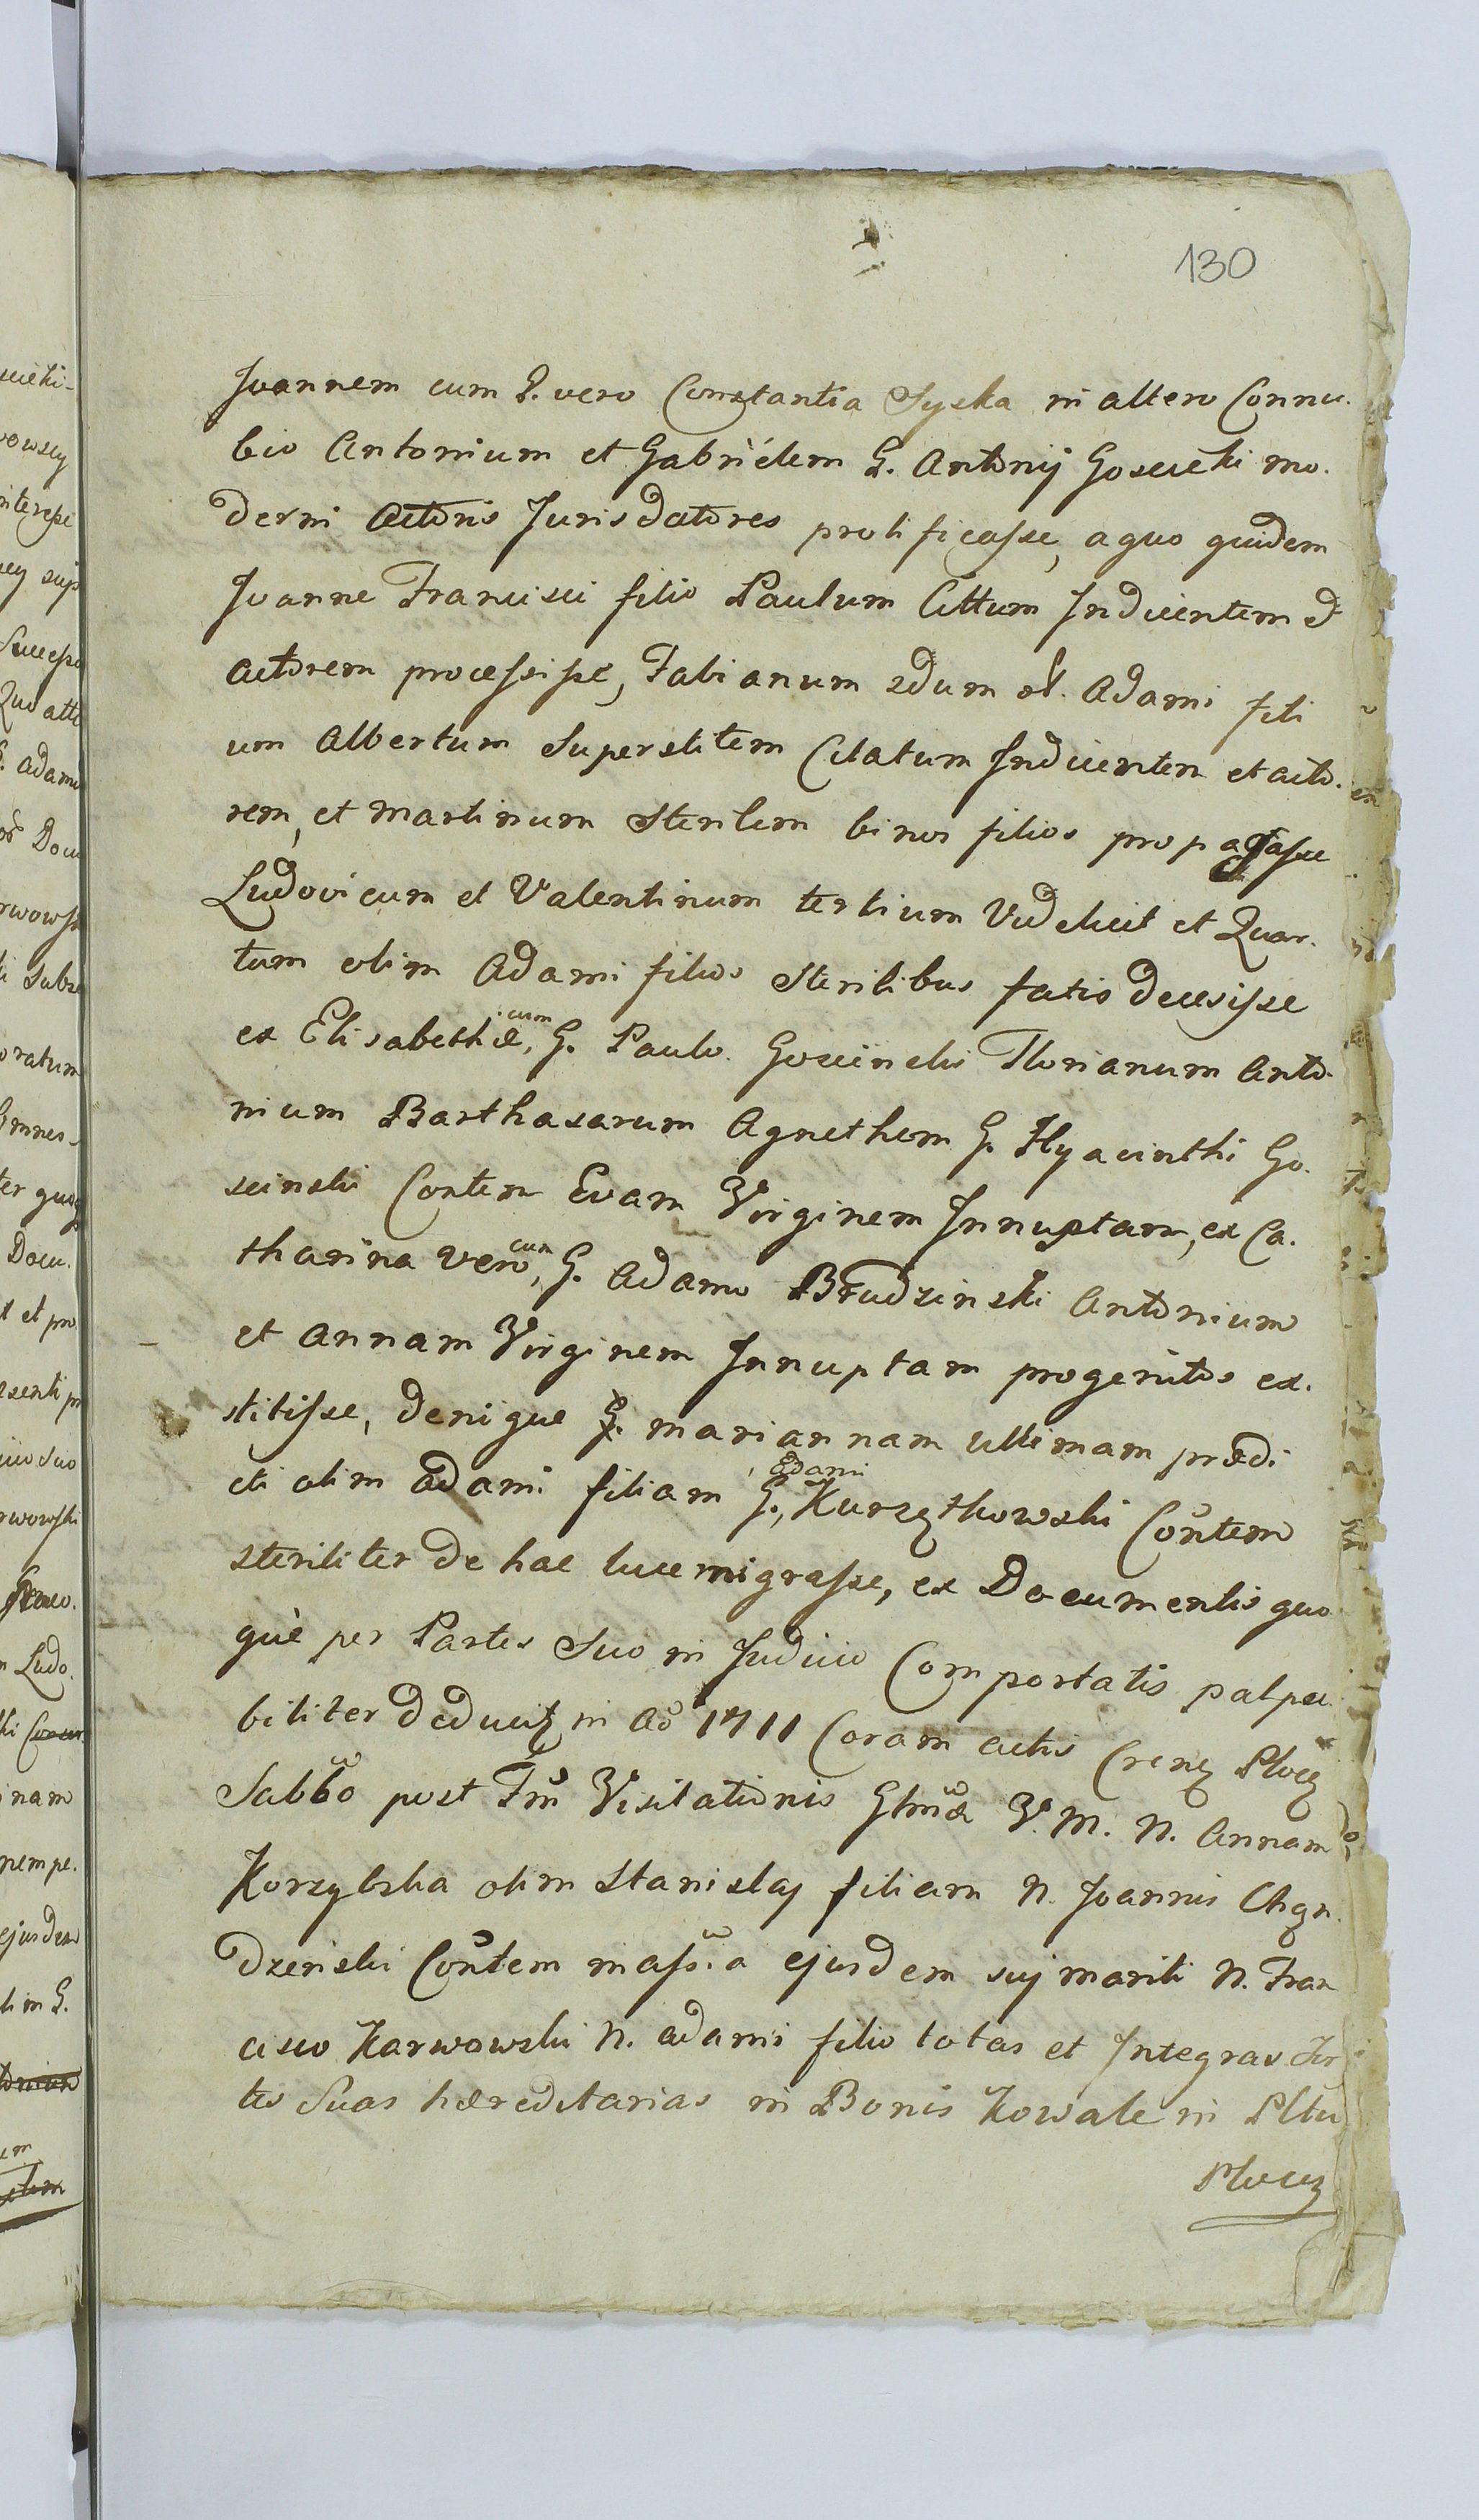 130
Joannem cum G. vero Constantia Syska in altero Connu.
bio Antonium et Gabriélem G. Antonij Goscicki mo.
derni Actoris Jurisdatores prolificasse, a quo quidem
Joanne Francisci filio Paulum Cittum Inducentem &
actorem processisse, Fabianum 2dum ol. Adami fili
um Albertum Superstitem Citatum Inducentem et acto.
rem, et Martinum Sterilem binos filios propagasse
Ludovicum et Valentinum tertium Videlicet et Quar.
tum olim Adami filios Sterilibus fatis decesisse
ex Elisabetha, cum G. Paulo Gosciinski Florianum Anto.
nium Barthasarum Agnethem G. Hyacinthi Go.
scinski Contem Evam Virginem Innuptam, ex Ca.
tharina vero, cum G. Adamo Brudzinski Antonium
et Annam Virginem Innuptam progenitos ex.
stitisse, denique G. Mariannam ultimam prædi
cti olim Adami filiam G. Adami Kurzętkowski Contem
steriliter de hac luce migrasse, ex Documentis quo
què per Partes Suo in Judicio Comportatis palpa
biliter deducitz in Aõ 1711 Coram actis Crenz Plocz
Sabbõ post Fm̃ Visitationis Glmæ V. M. N. Annam
Korzybska olim Stanislaj filiam N. Joannis Chąn.
dzenski Contem in assña ejusdem sui mariti N. Fran
cisco Karwowski N. Adami filio totas et Integras Sor
tes Suas hæreditarias in Bonis Kowale in Pltu
Plocz